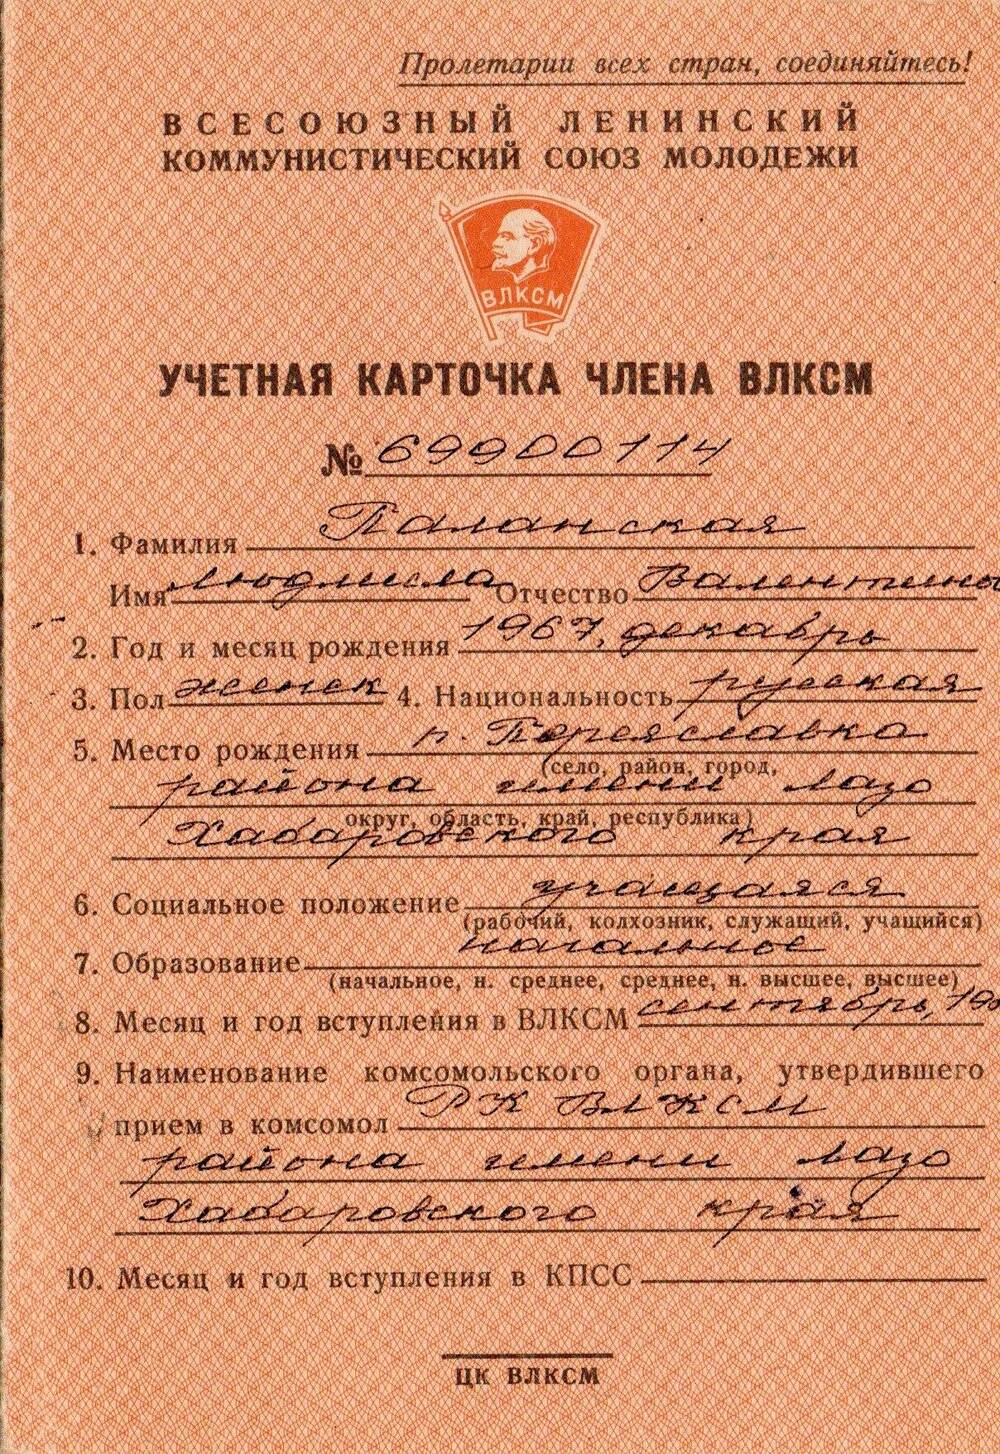 Пролетарии всех стран, соединяйтесь!
ВСЕСОЮЗНЫЙ ЛЕНИНСКИЙ
КОММУНИСТИЧЕСКИЙ СОЮЗ МОЛОДЕЖИ
ВЛКСМ
УЧЕТНАЯ КАРТОЧКА ЧЛЕНА ВЛКСМ
№ 69900114
1. Фамилия Паланская
Имя Людмила Отчество Валентино
2. Год и месяц рождения 1967, декабрь
3. Пол женск 4. Национальность русская
5. Место рождения п. Переяславка
(село, район, город,
района имени Лазо
округ, область, край, республика)
Хабаровского края
6. Социальное положение учащаяся
(рабочий, колхозник, служащий, учащийся)
7. Образование начальное
(начальное, н. среднее, среднее, н. высшее, высшее)
8. Месяц и год вступления в ВЛКСМ сентябрь, 198
9. Наименование комсомольского органа, утвердившего
прием в комсомол РК ВЛКСМ
района имени Лазо
Хабаровского края
10. Месяц и год вступления в КПСС
ЦК ВЛКСМ